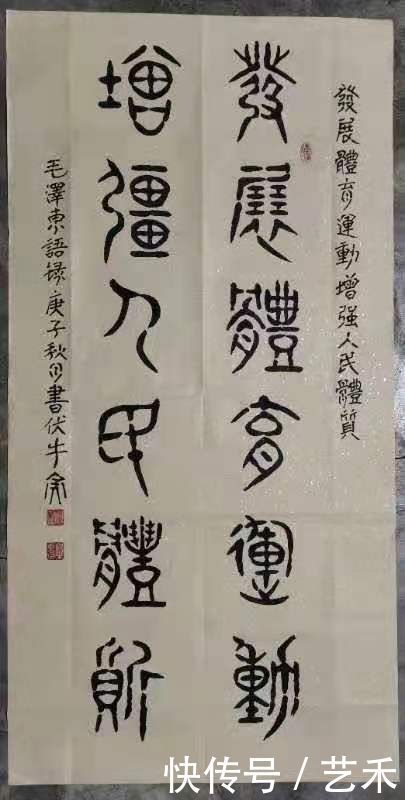 發展體育運動增强人民體質
發展體育運動
增彊人民體質
毛澤東語録庚子秋月書伏牛
快传号 / 艺禾